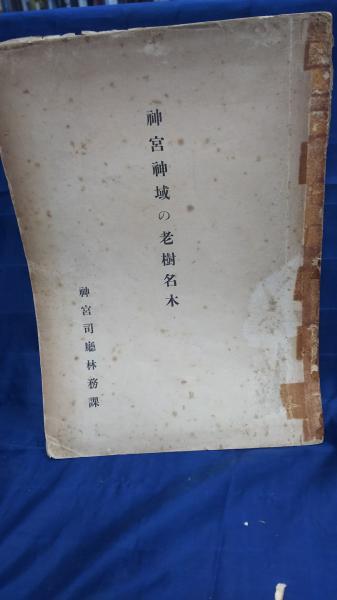 神宮神域の老樹名木
神宮司廳林務課